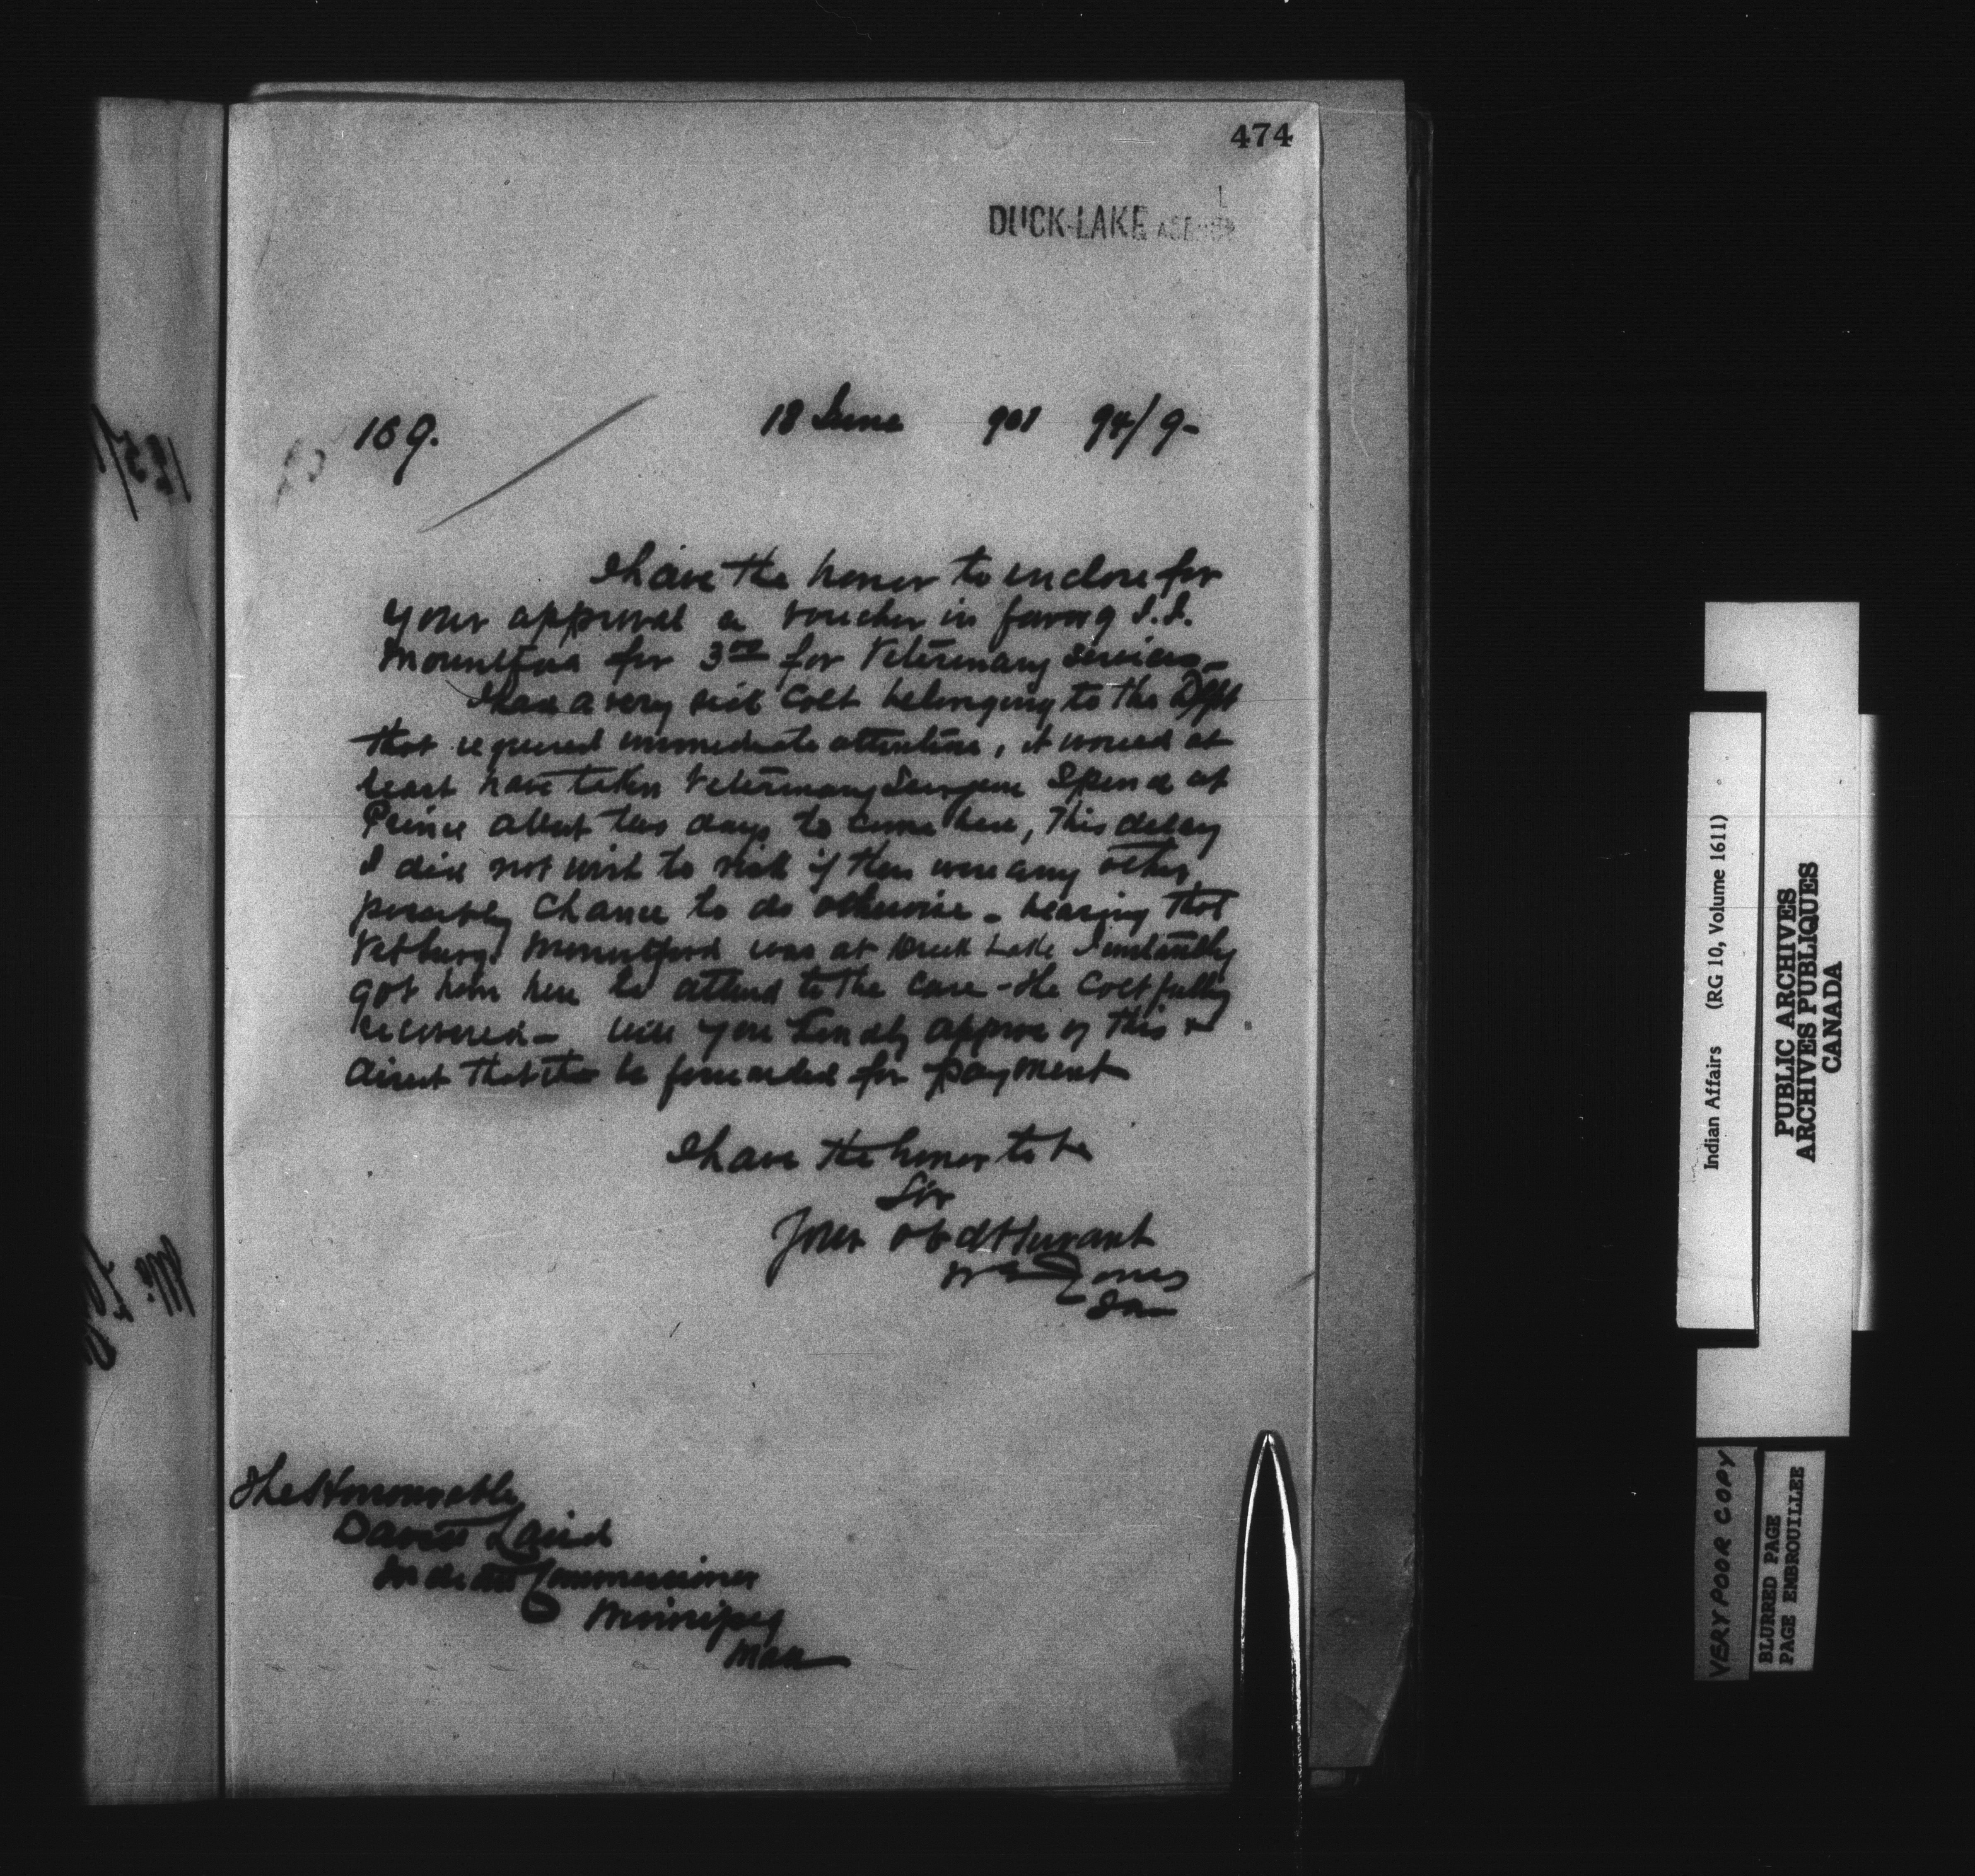 474
DUCK-LAKE AGENCY
169.
18 June 901 94/9-
I have the honor to inclose for
your approval a voucher in favor of
Mountford for 3 00 for Veterinary Services -
I had a very sick Colt belonging to the Dept
that required immediate attention, it would at
least have taken Veterinary Surgeon at
Prince Albert two days to come here, This delay
I did not wish to risk if there were any other
possibly Chance to do otherwise - hearing that
Mountford was at Duck Lake I instantly
got him here to attend to the Case - the Colt fully
recovered - will you kindly approve of this &
direct that it be forwarded for payment
I have the honor to be
Sir
Your obdt Servant
Jones
The Honourable
David Laird
Indian Commissioner
Winnipeg
Man
Indian Affairs (RG 10, Volume 1611)
PUBLIC ARCHIVES
ARCHIVES PUBLIQUES
CANADA
VERY POOR COPY
BLURRED PAGE
PAGE EMBROUILLEE